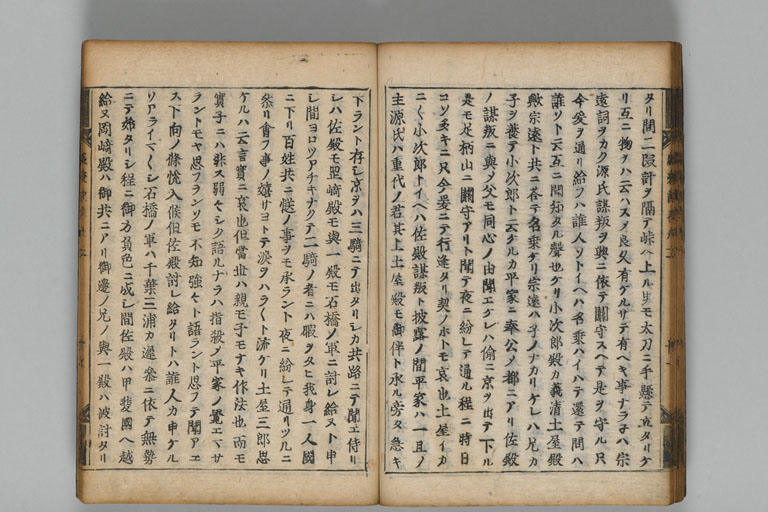 タリ間二段計ヲ隔テ峠ヘ上ル者モ太刀ニ手懸テ立タリケ
リ互ニ物ヲハ云ハスメ良久有ケルサテ有ヘキ事ナラ子ハ宗
遠詞ヲカク源氏謀叛ヲ興ニ依テ關守スヘテ是ヲ守ル只
今爰ヲ通リ給フハ誰人ソトイヘハ名乗ハイハテ還テ問ハ
誰ソト云互ニ聞知タル聲也ケリ小次郎殿カ義清土屋殿
歟宗遠ト共ニ答テ名乗ケリ宗遠ハ子ノナカリケレハ兄カ
子ヲ養テ小次郎ト云ケルカ平家ニ奉公メ都ニアリ佐殿
ノ謀叛ニ與ノ父モ同心ノ由聞エケレハ偸ニ京ヲ出テ下ル
是モ足柄山ニ關守アリト聞テ夜ニ紛レテ通ル程ニ時日
コソ多キニ只今爰ニテ行逢タリ契ノホトモ哀也土屋イカ
ニヤ小次郎トイヘハ佐殿謀叛ト披露ノ間平家ハ一旦ノ
主源氏ハ重代ノ君其上土屋殿モ御伴ト承ル旁タ急キ
下ラント存シ京ヲハ三騎ニテ出タリシカ共路ニテ聞エ侍リ
シハ佐殿モ岡崎殿モ與一殿モ石橋ノ軍ニ討レ給ヌト申
シ間ヨロツアチキナクテ二騎ノ者ニハ暇ヲタヒ我身一人國
ニ下リ百姓共ニ慥ノ事ヲモ承ラント夜ニ紛レテ通リツルニ
奉リ會フ事ノ嬉サヨトテ涙ヲハラハラト流ケリ土屋三郎思
ケルハ云言實ニ哀也但當世ハ親モ子モナキ作法也而モ
實子ニハ非ス弱キシク語ルナラハ指殺メ平家ノ覺エマサ
ラントモヤ思フランソモ不知強キト語ラント思フテ聞アエ
ス下向ノ條悦入候但佐殿討レ給タリトハ誰人カ申ケル
ソアライマイマシ石橋ノ軍ハ千葉三浦カ遅參ニ依テ無勢
ニテ始タリシ程ニ御方負色ニ成シ間佐殿ハ甲斐國ヘ越
給ヌ岡崎殿ハ御共ニアリ御邊ノ兄ノ與一殿ハ被討タリ